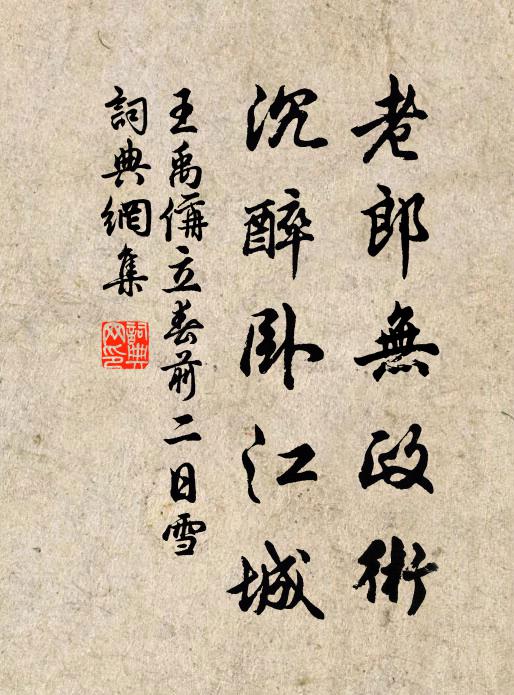 老郎無政術
沉醉臥江城
王禹偁立春前二日雪
詞典網集
詞典網印